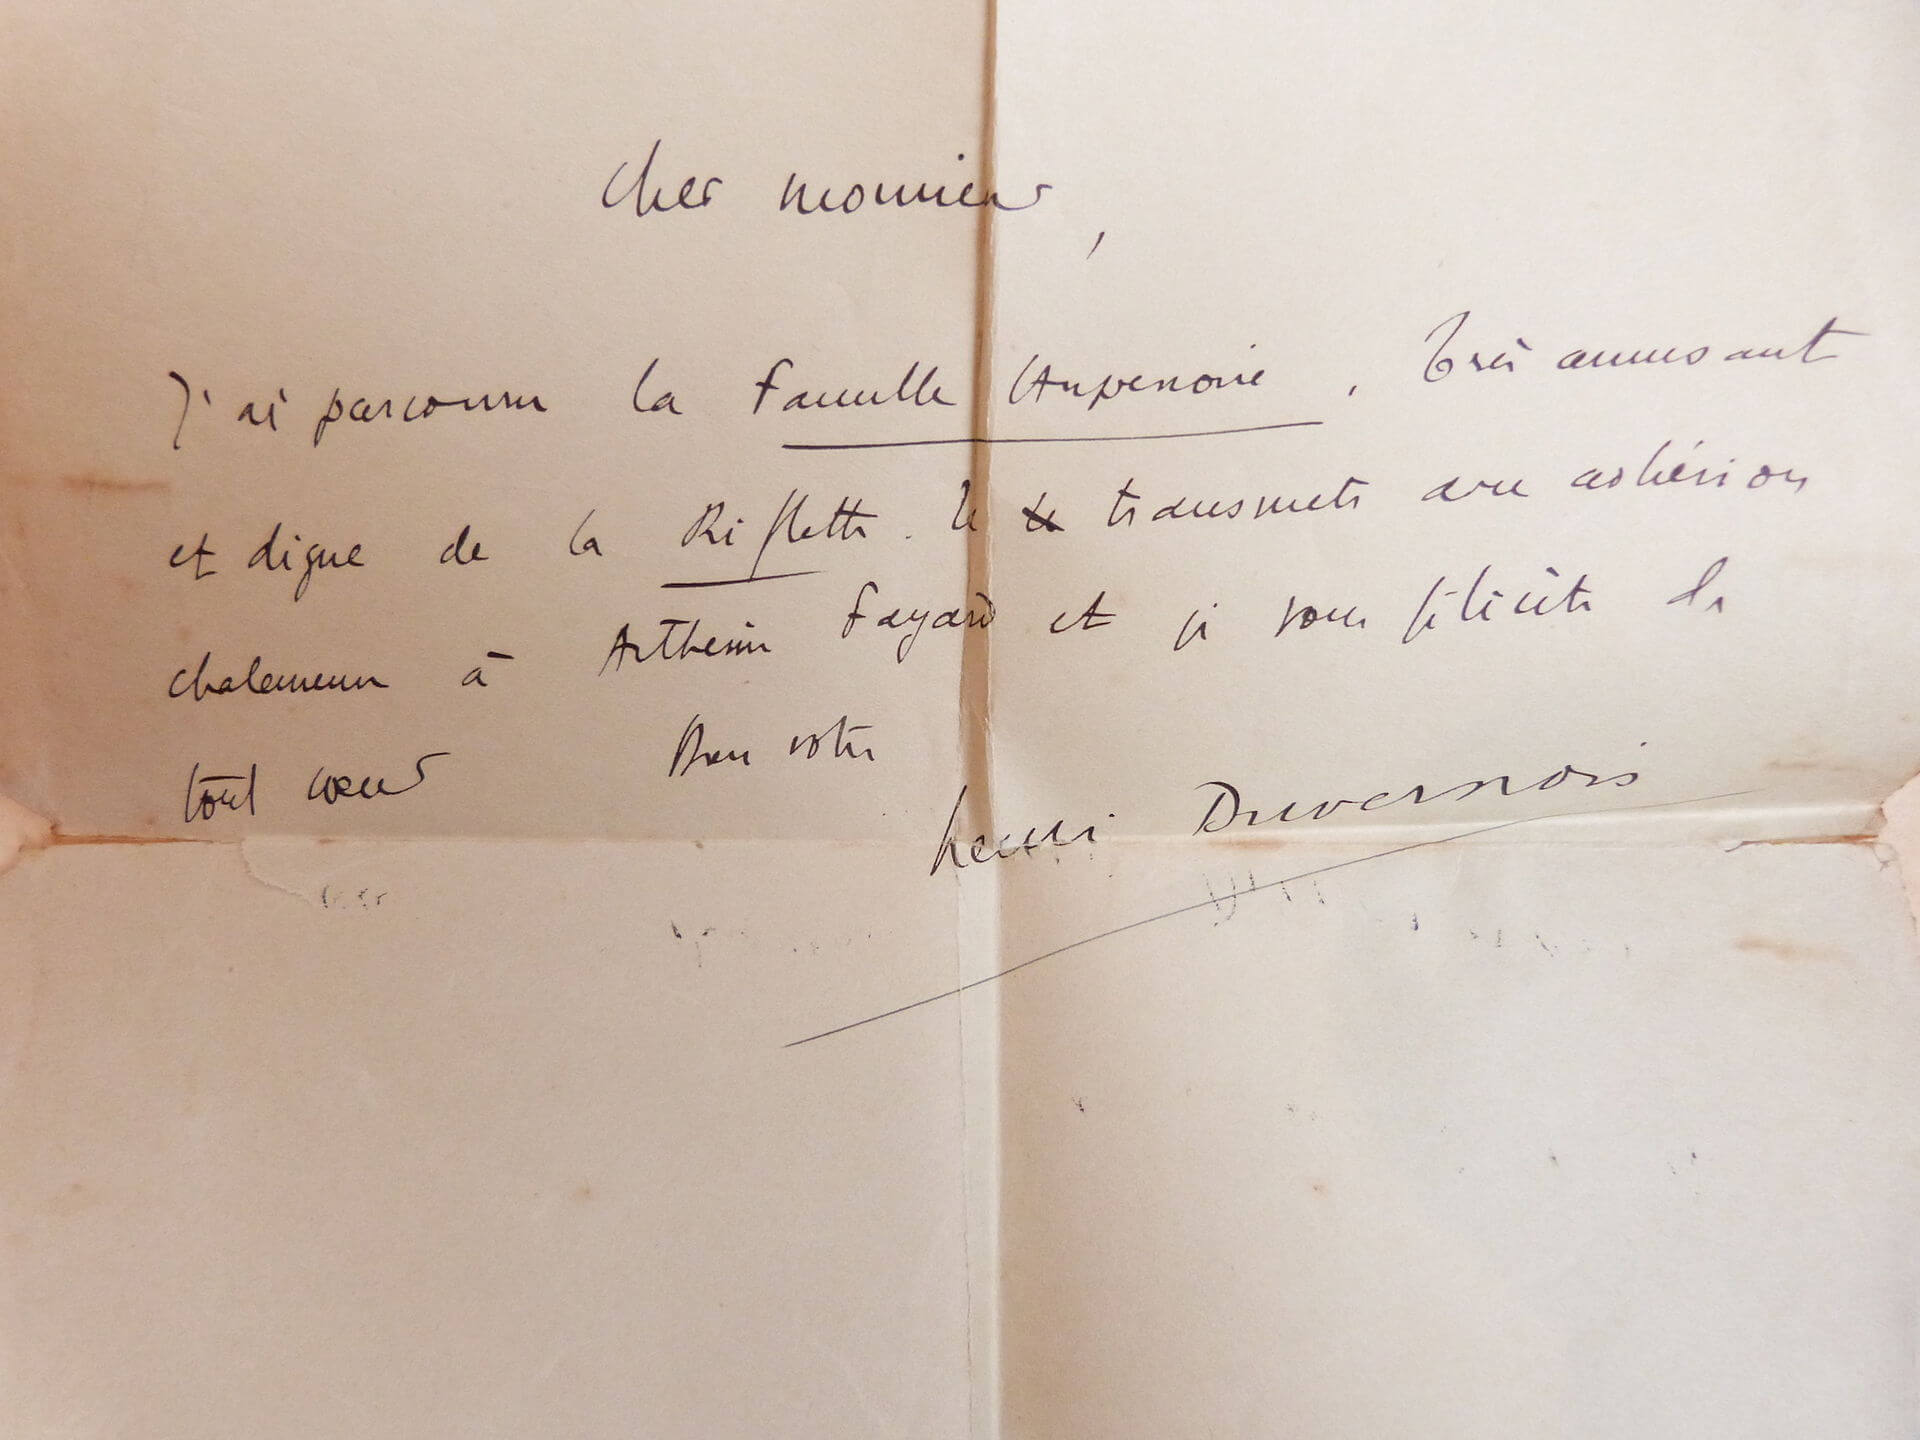 Cher monsieur,
J'ai parcouru la Famille . Très amusant
et digne de la Riflette. Je le transmets avec adhésion
chaleureuse à Arthème Fayard et je vous félicite de
tout cœur Bien votre
Henri Duvernois